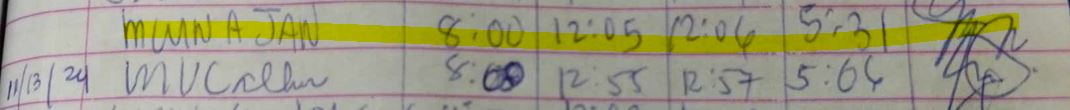 MUNA JAN 8:00 12:05 12:06 5:31
11/13/24 8:00 12:55 12:57 5:06